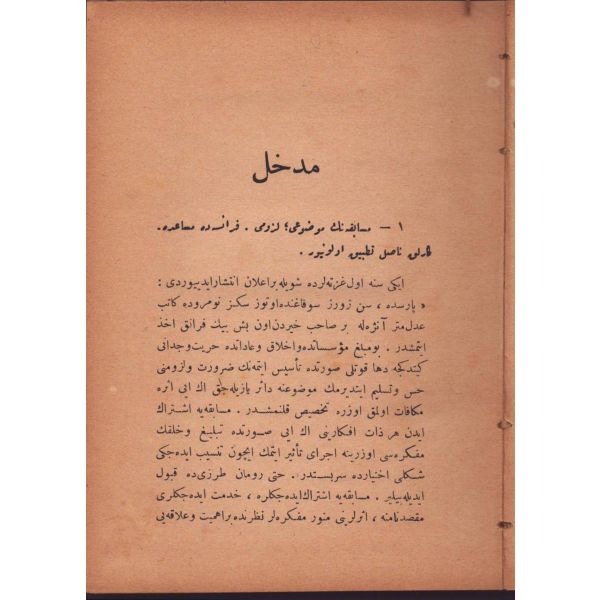 مدخل
١ — مسابقه‌نك موضوعی؛ لزومی . فرانسه‌ده مساعده‌
كارلق ناصل تطبیق اولونیور .
ایكی سنه اول غزته‌لرده شویله براعلان انتشارایدییوردی :
« پارسده ، سن ژورژ سوقاغنده اوتوز سكز نومروده كاتب
عدل متر آنژه‌له بر صاحب خیردن اون بش بیك فرانق اخذ
ایتمشدر . بومبلغ مؤسساتده واخلاق وعاداتده حریت وجدانی
كیتدكجه دها قوتلی صورتده تأسیس ایتمه‌نك ضرورت ولزومنی
حس وتسلیم ایتدیرمك موضوعنه دائر یازیله‌جق اك ایی اثره
مكافات اولمق اوزره تخصیص قلنمشدر . مسابقه‌یه اشتراك
ایدن هر ذات افكارینی اك ایی صورتده تبلیغ وخلقك
مفكره‌سی اوزرینه اجرای تأثیر ایتمك ایچون تنسیب ایده‌جكی
شكلی اختیارده سربستدر . حتی رومان طرزی‌ده قبول
ایدیله‌بیلیر . مسابقه‌یه اشتراك ایده‌جكلره ، خدمت ایده‌جكلری
مقصد نامنه ، اثرلرینی منور مفكره‌لر نظرنده براهمیت وعلاقه‌یی